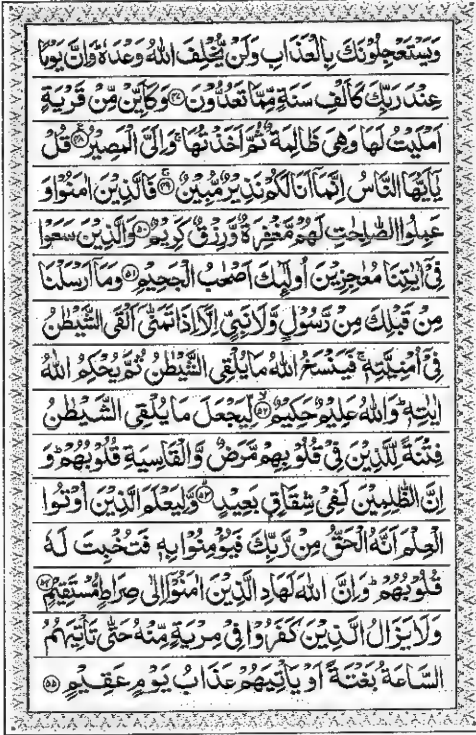 وَيَسْتَعْجِلُوْنَكَ بِالْعَذَابِ وَلَنْ يُّخْلِفَ اللّٰهُ وَعْدَهٗ ؕ وَاِنَّ يَوْمًا
عِنْدَ رَبِّكَ كَاَلْفِ سَنَةٍ مِّمَّا تَعُدُّوْنَ ﴿۴۷﴾ وَكَاَيِّنْ مِّنْ قَرْيَةٍ
اَمْلَيْتُ لَهَا وَهِىَ ظَالِمَةٌ ثُمَّ اَخَذْتُهَا ۚ وَاِلَىَّ الْمَصِيْرُ ﴿۴۸﴾ قُلْ
يٰۤاَيُّهَا النَّاسُ اِنَّمَاۤ اَنَا لَكُمْ نَذِيْرٌ مُّبِيْنٌ ﴿۴۹﴾ فَالَّذِيْنَ اٰمَنُوْا وَ
عَمِلُوا الصّٰلِحٰتِ لَهُمْ مَّغْفِرَةٌ وَّرِزْقٌ كَرِيْمٌ ﴿۵۰﴾ وَالَّذِيْنَ سَعَوْا
فِىْۤ اٰيٰتِنَا مُعٰجِزِيْنَ اُولٰٓئِكَ اَصْحٰبُ الْجَحِيْمِ ﴿۵۱﴾ وَمَاۤ اَرْسَلْنَا
مِنْ قَبْلِكَ مِنْ رَّسُوْلٍ وَّلَا نَبِىٍّ اِلَّاۤ اِذَا تَمَنّٰۤى اَلْقَى الشَّيْطٰنُ
فِىْۤ اُمْنِيَّتِهٖ ۚ فَيَنْسَخُ اللّٰهُ مَا يُلْقِى الشَّيْطٰنُ ثُمَّ يُحْكِمُ اللّٰهُ
اٰيٰتِهٖ ؕ وَاللّٰهُ عَلِيْمٌ حَكِيْمٌ ﴿۵۲﴾ لِّيَجْعَلَ مَا يُلْقِى الشَّيْطٰنُ
فِتْنَةً لِّلَّذِيْنَ فِىْ قُلُوْبِهِمْ مَّرَضٌ وَّالْقَاسِيَةِ قُلُوْبُهُمْ ؕ وَ
اِنَّ الظّٰلِمِيْنَ لَفِىْ شِقَاقٍۭ بَعِيْدٍ ﴿۵۳﴾ وَّلِيَعْلَمَ الَّذِيْنَ اُوْتُوا
الْعِلْمَ اَنَّهُ الْحَقُّ مِنْ رَّبِّكَ فَيُؤْمِنُوْا بِهٖ فَتُخْبِتَ لَهٗ
قُلُوْبُهُمْ ؕ وَاِنَّ اللّٰهَ لَهَادِ الَّذِيْنَ اٰمَنُوْۤا اِلٰى صِرَاطٍ مُّسْتَقِيْمٍ ﴿۵۴﴾
وَلَا يَزَالُ الَّذِيْنَ كَفَرُوْا فِىْ مِرْيَةٍ مِّنْهُ حَتّٰى تَاْتِيَهُمُ
السَّاعَةُ بَغْتَةً اَوْ يَاْتِيَهُمْ عَذَابُ يَوْمٍ عَقِيْمٍ ﴿۵۵﴾